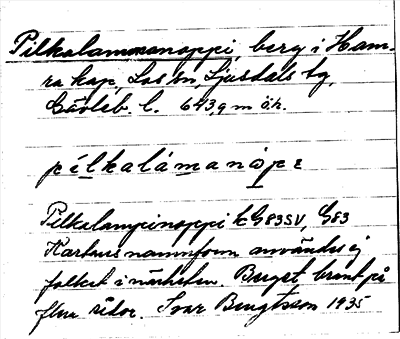 Pilkalamanoppi, berg i Ham-
ra kap, Los sn, Ljusdals tg,
Gävleb. l. 643,9 m ö.h.
pílkalámanòpε
Pilkalampinoppi kG83SV, G83
Kartans namnform användes ej
folket i närheten. Berget brant på
flera sidor. Ivar Bengtsson 1935